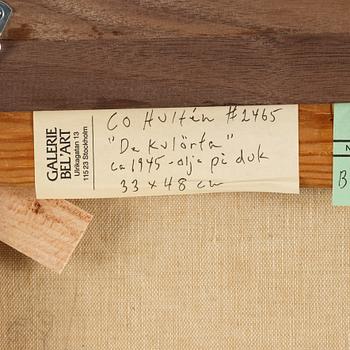 GALERIE
BEL'ART
Ulrikagatan 13
115 23 Stockholm
CO Hultén #2465
"De kulörta"
ca 1945 - olja på duk
33 x 48 cm
N
B